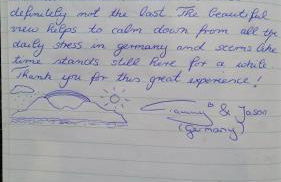 definitely not the last. The beautiful
view helps to calm down from all the
daily stress in germany and seems like
time stands still here for a while.
Thank you for this great experience!
& Jason
(Germany)